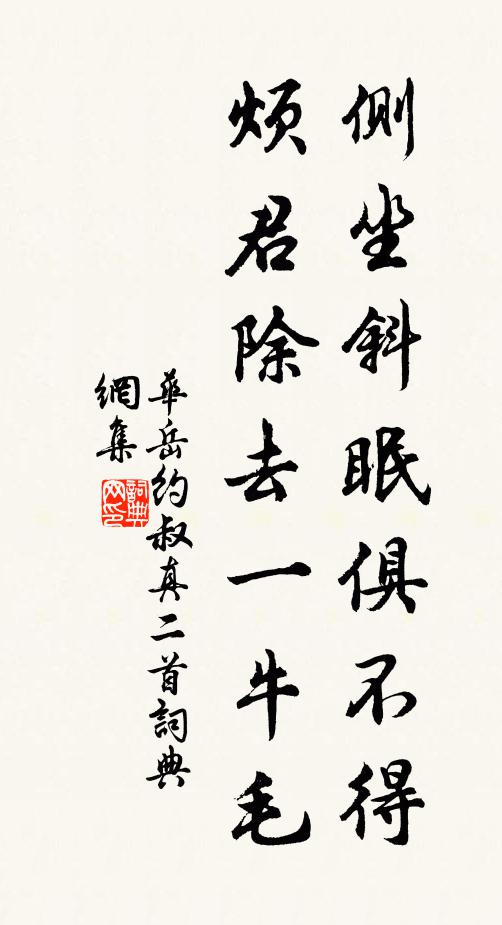 側坐斜眠俱不得
煩君除去一牛毛
華岳約叔真二首詞典
網集
詞典
网印